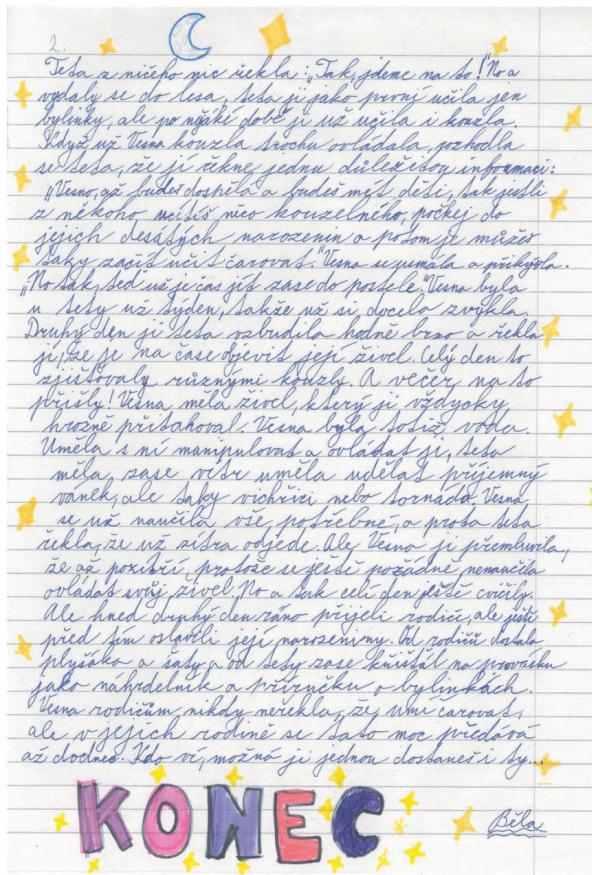 2.
Teta z ničeho nic řekla: „Tak, jdeme na to!" No a
vydaly se do lesa, teta ji jako první učila jen
bylinky, ale po nějaké době ji už učila i kouzla.
Když už Vesna kouzla trochu ovládala, rozhodla
se teta, že jí řekne jednu důležitou informaci:
„Vesno, až budeš dospělá a budeš mít děti, tak jestli
z někoho ucítíš něco kouzelného, počkej do
jejich desátých narozenin a potom je můžeš
taky začít učit čarovat." Vesna se usmála a přikývla.
„No tak, teď už je čas jít zase do postele." Vesna byla
u tety už týden, takže už si docela zvykla.
Druhý den ji teta vzbudila hodně brzo a řekla
jí, že je na čase objevit její živel. Celý den to
zjišťovaly různými kouzly. A večer, na to
přišly! Vesna měla živel, který ji vždycky
hrozně přitahoval. Vesna byla totiž voda.
Uměla s ní manipulovat a ovládat ji, teta
měla, zase vítr uměla udělat příjemný
vánek, ale taky vichřici nebo tornádo. Vesna
se už naučila vše, potřebné, a proto teta
řekla, že už zítra odjede. Ale Vesna ji přemluvila,
že až pozítří, protože se ještě pořádně, nenaučila
ovládat svůj živel. No a tak celí den ještě cvičily.
Ale hned druhý den ráno přijeli rodiči, ale ještě
před tím oslavili její narozeniny. Od rodičů dostala
plyšáka a šaty a od tety zase křišťál na provázku
jako náhrdelník a příručku o bylinkách.
Vesna rodičům nikdy neřekla, že umí čarovat,
ale v jejich rodině se tato moc předává
až dodnes. Kdo ví, možná ji jednou dostaneš i ty...
KONEC
Běla